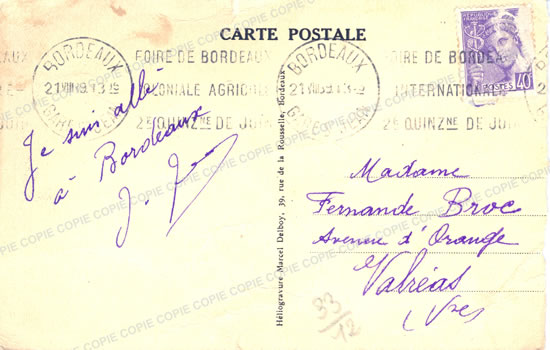 CARTE POSTALE
BORDEAUX
21 VIII 39 13
FOIRE DE BORDEAUX
COLONIALE AGRICOLE
2E QUINZNE DE JUIN
BORDEAUX
FOIRE DE BORDEAU
INTERNATIONALE
2E QUINZNE DE JUIN
POSTES 40
Je suis allé
à Bordeaux
Héliogravure Marcel Delboy, 39, rue de la Rousselle, Bordeaux.
Madame
Fernande Broc
Avenue d'Orange
Valréas
(Vse)
33/12
COPIE COPIE COPIE COPIE COPIE COPIE